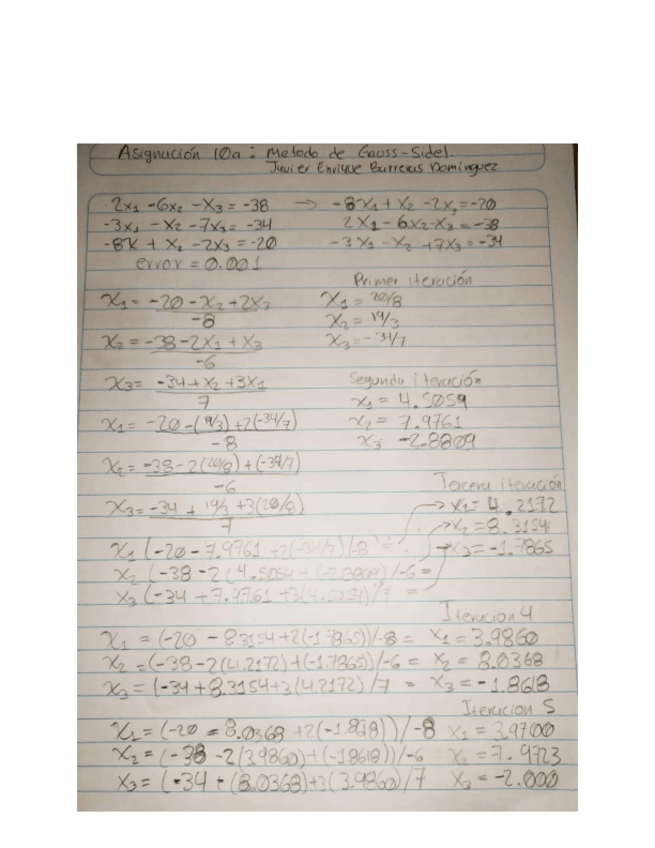 Asignación 10a: Metodo de Gauss-Sidel.
Javier Enrique Barreras Dominguez
2x₁ -6x₂ -x₃ = -38 → -8x₁ + x₂ -2x₃ = -20
-3x₁ -x₂ -7x₃ = -34 2x₁ -6x₂ -x₃ = -38
-8x + x₂ -2x₃ = -20 -3x₁ -x₂ +7x₃ = -34
error = 0.001
Primer iteración
x₁ = -20 -x₂ +2x₃ / -8 x₁ = 20/8
x₂ = 19/3
x₂ = -38 -2x₁ + x₃ / -6 x₃ = -34/7
x₃ = -34 + x₂ +3x₁ / 7 Segunda iteración
x₁ = 4.5059
x₁ = -20 -(19/3) +2(-34/7) / -8 x₂ = 7.9761
x₃ -2.8809
x₂ = -38 -2(20/8) + (-34/7) / -6
Tercera iteración
x₃ = -34 + 19/3 +3(20/8) / 7 → x₁ = 4.2172
→ x₂ = 8.3154
x₁ (-20 - 7.9761 +2(-34/7)/-8 = → x₃ = -1.7865
x₂ (-38 -2(4.5054 + (-2.8809)/-6 =
x₃ (-34 + 7.9761 +3(4.5054)/7 =
Iteracion 4
x₁ = (-20 - 8.3154 +2(-1.7865))/-8 = x₁ = 3.9860
x₂ = (-38 -2(4.2172) + (-1.7865))/-6 = x₂ = 8.0368
x₃ = (-34 + 8.3154 +3(4.2172)/7 = x₃ = -1.8618
Iteracion 5
x₁ = (-20 = 8.0368 +2(-1.818))/-8 x₁ = 3.9700
x₂ = (-38 -2(3.9860) + (-1.8618))/-6 x₂ = 7.9723
x₃ = (-34 + (8.0368) +3(3.9860)/7 x₃ = -2.000